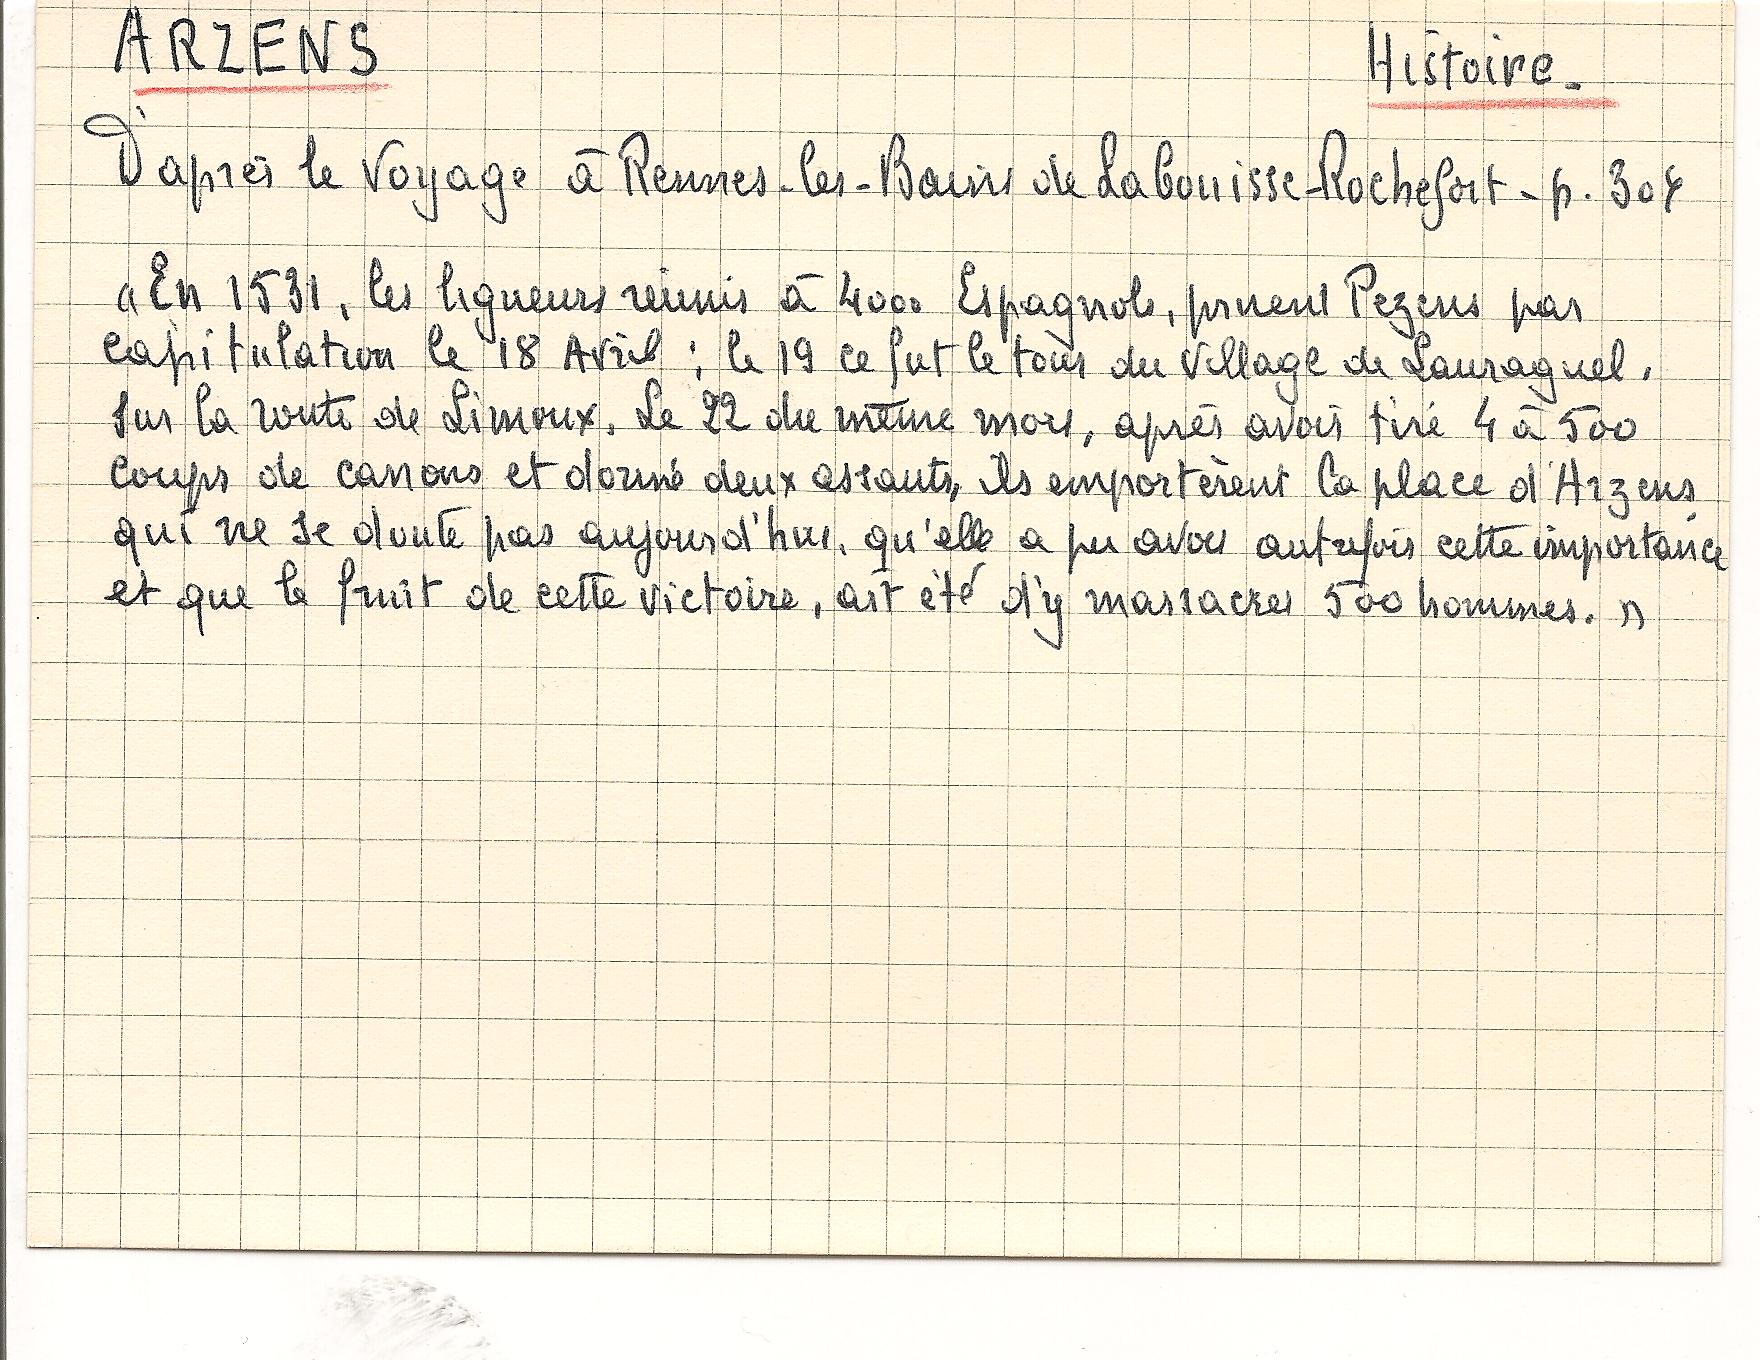 ARZENS
Histoire_
D'après le Voyage à Rennes-les-Bains de Labouisse-Rochefort - p. 304
"En 1531, les ligueurs réunis à 4000 Espagnols, prirent Pezens par
capitulation le 18 Avril ; le 19 ce fut le tour du village de Lauraguel,
sur la route de Limoux. Le 22 du même mois, après avoir tiré 4 à 500
coups de canons et donné deux assauts, ils emportèrent la place d'Arzens
qui ne se doute pas aujourd'hui, qu'elle a pu avoir autrefois cette importance
et que le fruit de cette victoire, ait été d'y massacrer 500 hommes. "